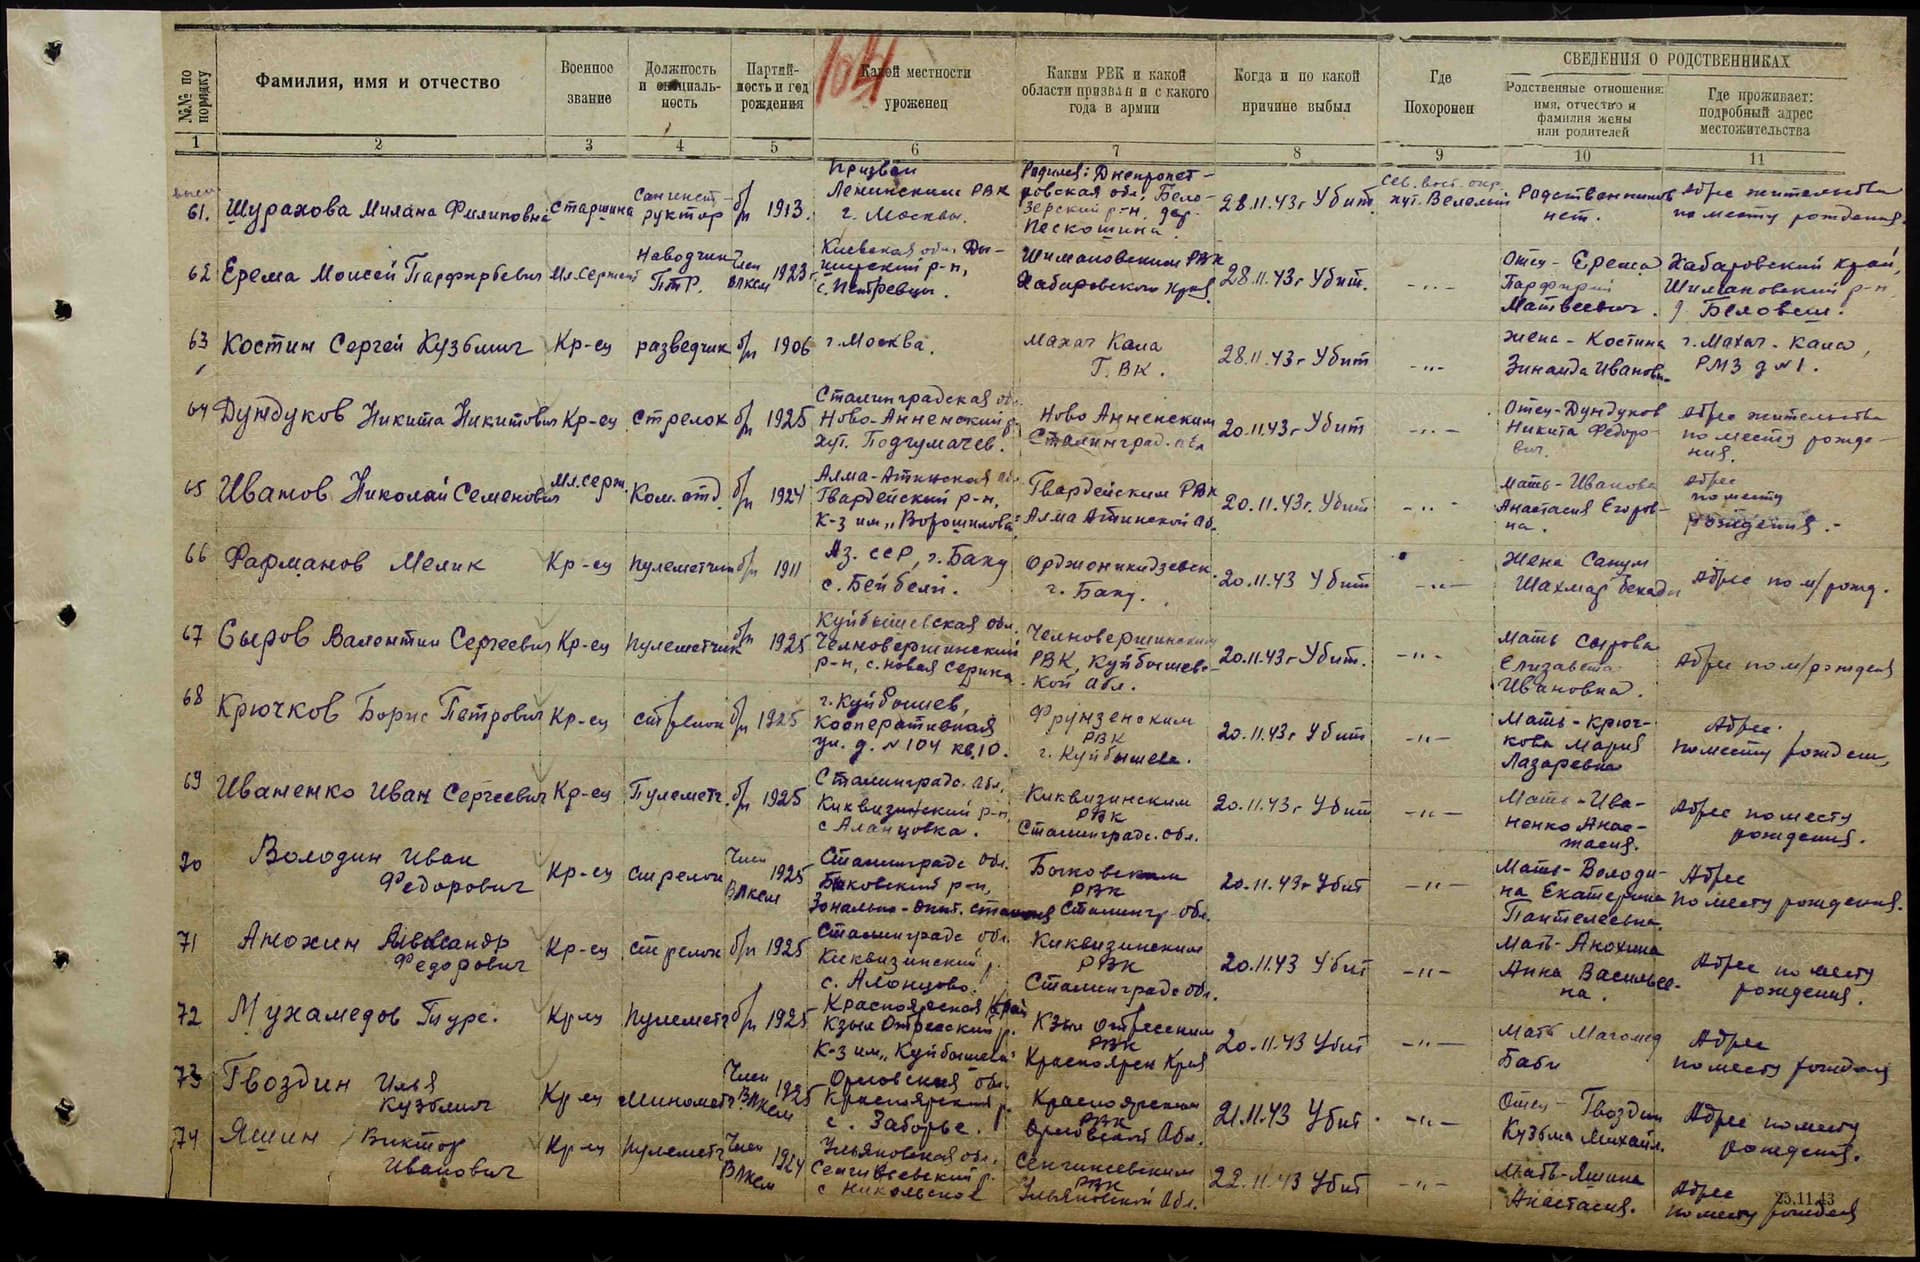 164
№№ по порядку
Фамилия, имя и отчество
Военное звание
Должность и специаль-ность
Партий-ность и год рождения
Какой местности уроженец
Каким РВК и какой области призван и с какого года в армии
Когда и по какой причине выбыл
Где Похоронен
СВЕДЕНИЯ О РОДСТВЕННИКАХ
Родственные отношения: имя, отчество и фамилия жены или родителей
Где проживает: подробный адрес местожительства
1 2 3 4 5 6 7 8 9 10 11
61. Шурахова Милана Филиповна Старшина Санинст-руктор б/п 1913. Призван Ленинским РВК г. Москвы. Родилась: Днепропет-ровская обл, Бело-зерский р-н, дер. Пескошина. 28.11.43г Убит. Сев. вост. окр. хут. Родственников нет. Адрес жительства по месту рождения.
62 Ерема Моисей Парфирьевич Мл. сержант Наводчик ПТР. Член ВЛКСМ 1923г Киевская обл. р-н, с. Петревцы. Шимановским РВК Хабаровского края. 28.11.43г Убит. -"- Отец - Ерема Парфирий Матвеевич. Хабаровский край, Шимановский р-н д. Беловеш.
63 Костин Сергей Кузьмич Кр-ец разведчик б/п 1906 г. Москва. Махач Кала Г.ВК. 28.11.43г Убит -"- Жена - Костина Зинаида Иванов. г. Махач-Кала, РМЗ д №1.
64 Дундуков Никита Никитович Кр-ец стрелок б/п 1925 Сталинградская обл. Ново-Анненский р. хут. Подгумачев. Ново Анненским Сталинград. обл 20.11.43г Убит -"- Отец-Дундуков Никита Федоро-вич. Адрес жительства по месту рожде-ния.
65 Иванов Николай Семенович Мл. серж. Ком. отд. б/п 1924 Алма-Атинская об. Гвардейский р-н, к-з им. „Ворошилова" Гвардейским РВК Алма Атинской об. 20.11.43г. Убит -"- Мать-Иванова Анастасия Егоров-на. Адрес по месту рождения.-
66 Фарманов Мелик Кр-ец Пулеметчик б/п 1911 Аз. ССР, г. Баку с. Бейбели. Орджоникидзевск. г. Баку. 20.11.43 Убит -"- Жена Санум Шахмар Адрес по м/рожд.
67 Сыров Валентин Сергеевич Кр-ец Пулеметчик б/п 1925 Куйбышевская обл. Челновершинский р-н, с. Новая Серина Челновершинским РВК, Куйбышевс-кой обл. 20.11.43г Убит. -"- Мать Сырова Елизавета Ивановна. Адрес по м/рождения
68 Крючков Борис Петрович Кр-ец стрелок б/п 1925 г. Куйбышев, Кооперативная ул. д. №104 кв. 10. Фрунзенским РВК г. Куйбышева. 20.11.43г Убит -"- Мать-Крюч-кова Мария Лазаревна Адрес. по месту рожден,
69 Иваненко Иван Сергеевич Кр-ец Пулемет. б/п 1925 Сталинградс. обл. Киквизинский р-н, с Аланцовка. Киквизинским РВК Сталинградс. обл. 20.11.43г Убит -"- Мать-Ива-ненко Анас-тасия. Адрес по месту рождения.
70 Володин Иван Федорович Кр-ец стрелок Член ВЛКСМ 1925 Сталинградс обл. Быковский р-н, Зонально-опыт. станция Быковским РВК Сталингр. обл. 20.11.43г Убит -"- Мать-Володи-на Екатерина Пантелеевна. Адрес по месту рождения.
71 Анохин Александр Федорович Кр-ец стрелок б/п 1925 Сталинградс обл. Киквизинский р. с. Алонцово. Киквизинским РВК Сталинградс обл. 20.11.43 Убит -"- Мать-Анохина Анна Васильев-на. Адрес по месту рождения.
72 Мухамедов Турс. Кр-ец Пулемет. б/п 1925 Красноярская край Кзыл р. К-з им „Куйбышева" Кзыл РВК Красноярск Края 20.11.43 Убит -"- Мать Магомед Баби Адрес по месту рождения
73 Гвоздин Илья Кузьмич Кр-ец Миномет. Член ВЛКСМ 1925 Орловская обл. Красноярский р. с. Заборье. Красноярским РВК Орловской обл. 21.11.43 Убит. -"- Отец - Гвоздин Кузьма Михайл. Адрес по месту рождения.
74 Яшин Виктор Иванович Кр-ец Пулемет. Член ВЛКСМ 1924 Ульяновская обл. р. с Никольское Сенгилеевским РВК Ульяновской обл. 22.11.43 Убит -"- Мать-Яшина Анастасия. Адрес по месту рождения
25.11.43